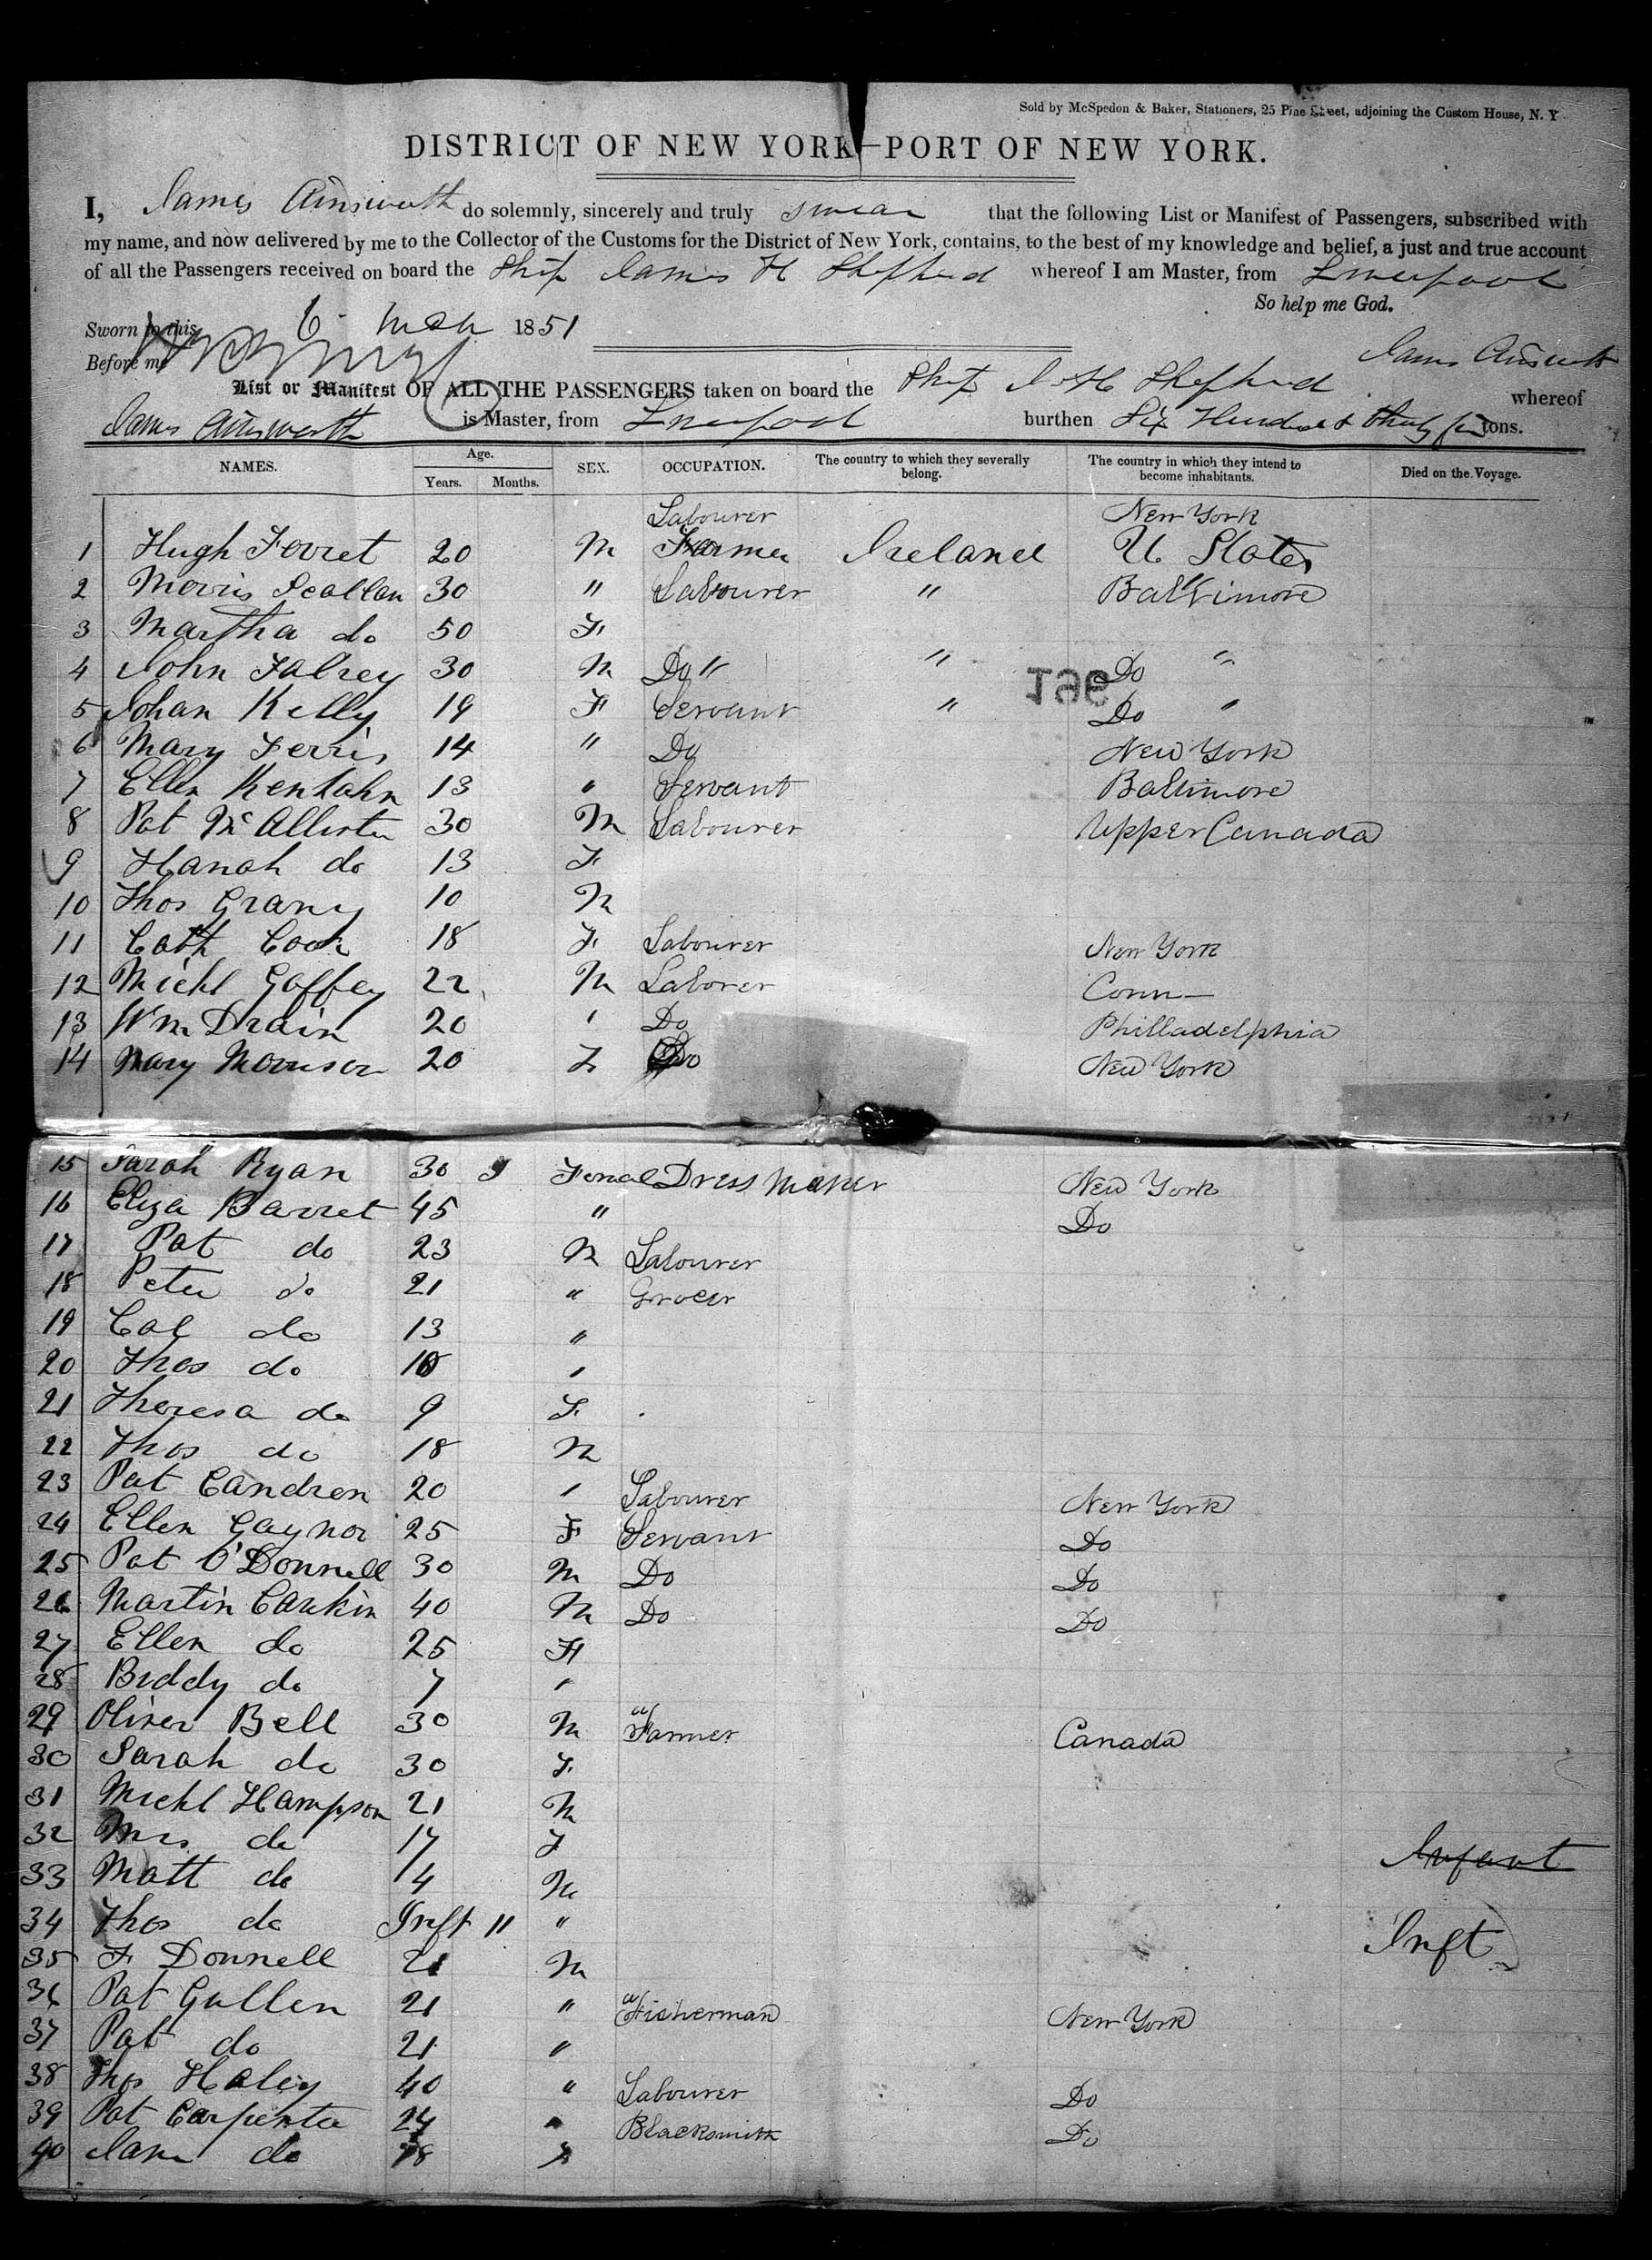 Sold by McSpedon & Baker, Stationers, 25 Pine Street, adjoining the Custom House, N. Y
DISTRICT OF NEW YORK—PORT OF NEW YORK.
I, James Ainsworth do solemnly, sincerely and truly swear that the following List or Manifest of Passengers, subscribed with
my name, and now delivered by me to the Collector of the Customs for the District of New York, contains, to the best of my knowledge and belief, a just and true account
of all the Passengers received on board the Ship James H Shepherd whereof I am Master, from Liverpool
So help me God.
Sworn to this 6 1851
Before me James Ainsworth
List or Manifest OF ALL THE PASSENGERS taken on board the Ship J H Shepherd whereof
James Ainsworth is Master, from Liverpool burthen Six Hundred & thirty tons.
NAMES. Age. Years. Months. SEX. OCCUPATION. The country to which they severally belong. The country in which they intend to become inhabitants. Died on the Voyage.
Labourer New York
1 Hugh Forret 20 M Farmer Ireland U States
2 Morris Scallan 30 " Labourer " Baltimore
3 Martha do 50 F
4 John Falrey 30 M Do " " Do "
196
5 Johan Kelly 19 F Servant " Do "
6 Mary Ferris 14 " Do New York
7 Ellen 13 " Servant Baltimore
8 Pat McAllister 30 M Labourer Upper Canada
9 Hanah do 13 F
10 Thos Grany 10 M
11 Cath Cook 18 F Labourer New York
12 Michl Gaffey 22 M Laborer Conn—
13 Wm Drain 20 " Do Philladelphia
14 Mary Morrison 20 F Do New York
15 Sarah Ryan 30 Femal Dress Maker New York
16 Eliza Barret 45 " Do
17 Pat do 23 M Labourer
18 Peter do 21 " Grocer
19 do 13 "
20 Thos do 10 "
21 Theresa do 9 F
22 Thos do 18 M
23 Pat Candren 20 " Labourer New York
24 Ellen Gaynor 25 F Servant Do
25 Pat O'Donnell 30 M Do Do
26 Martin Carkin 40 M Do Do
27 Ellen do 25 F
28 Biddy do 7 "
29 Oliver Bell 30 M Farmer Canada
30 Sarah do 30 F
31 Michl Hampson 21 M
32 Mrs do 17 F
33 Matt do 4 M Infant
34 Thos do Inft " " Inft
35 F Donnell 21 M
36 Pat Gullen 21 " Fisherman New York
37 Pat do 21 "
38 Thos Haley 40 " Labourer Do
39 Pat Carpenter 24 " Blacksmith Do
40 Jane do 18